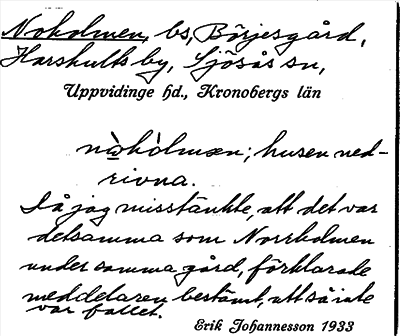 Noholmen, bs, Börjesgård,
Harshults by, Sjösås sn,
Uppvidinge hd., Kronobergs län
nò̤hòlmen; husen ned-
rivna.
Då jag misstänkte, att det var
detsamma som Norrholmen
under samma gård, förklarade
meddelaren bestämt, att så icke
var fallet.
Erik Johannesson 1933